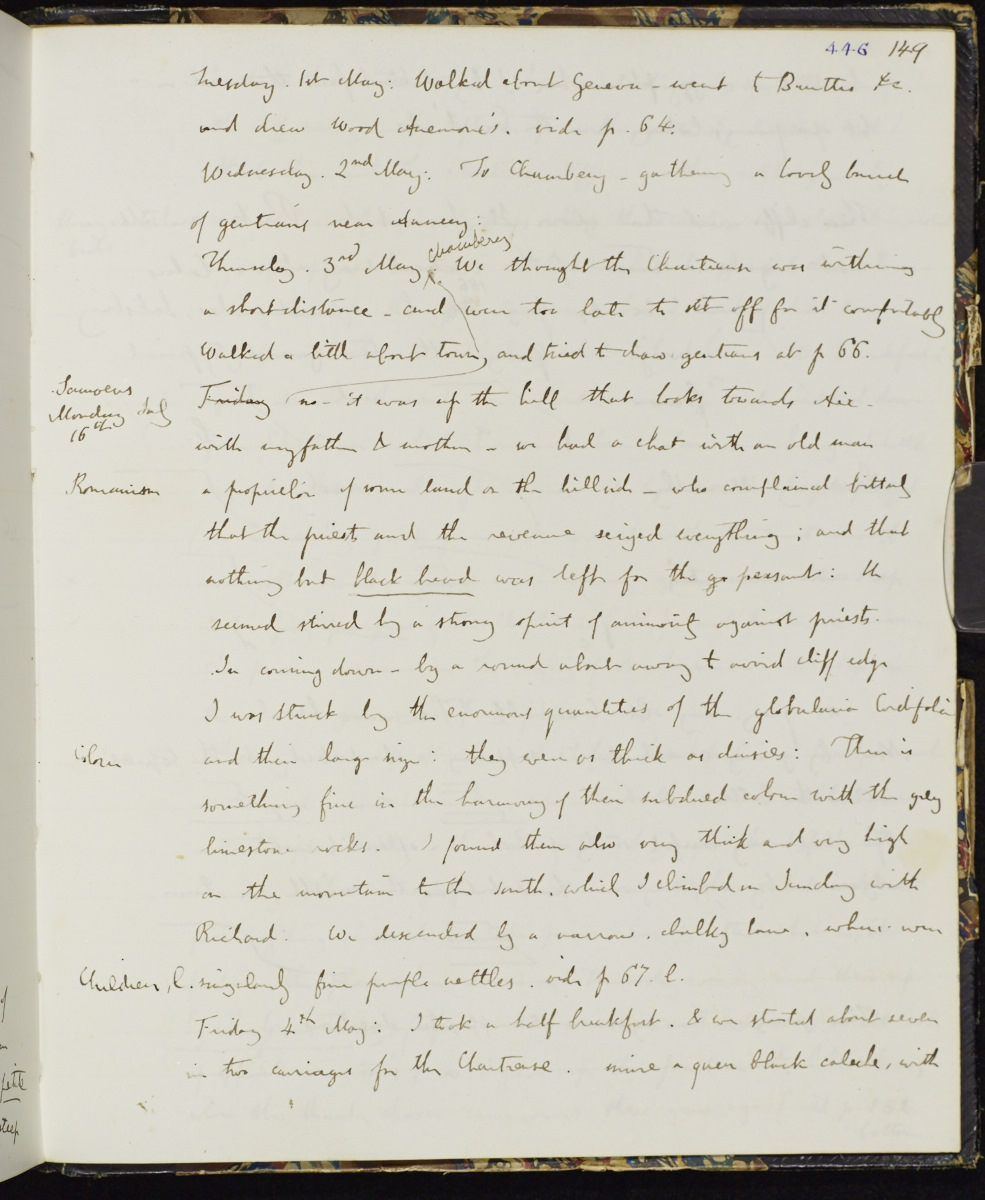 446 149
Tuesday. 1st May: Walked about Geneva - went to Bauttes &c.
and drew Wood Anemone's. vide p. 64.
Wednesday. 2nd May: To Chambery - gathering a lovely bunch
of gentians near Annecy:
Chambéry
Thursday. 3rd May. We thought the Chartreuse was within
a short distance - and were too late to set off for it comfortably
Walked a little about town, and tried to draw gentians at p 66.
Samoens
Monday July
16th
Friday no - it was up the hill that looks towards Aix -
with my father & mother - we had a chat with an old man
Romanism
a proprietor of some land on the hillside - who complained bitterly
that the priests and the revenue seized everything; and that
nothing but black bread was left for the peasant: He
seemed stirred by a strong spirit of animosity against priests.
In coming down - by a round about way to avoid cliff edge
I was struck by the enormous quantities of the globularia Cordifolia
Colour
and their large size: they were as thick as daisies: There is
something fine in the harmony of their subdued colour with the grey
limestone rocks. I found them also very thick and very high
on the mountain to the south, which I climbed on Sunday with
Richard. We descended by a narrow, chalky lane, where were
Children, l. singularly fine purple nettles. vide p 67. l.
Friday 4th May: I took a half breakfast. & we started about seven
in two carriages for the Chartreuse. mine a queer black caleche, with